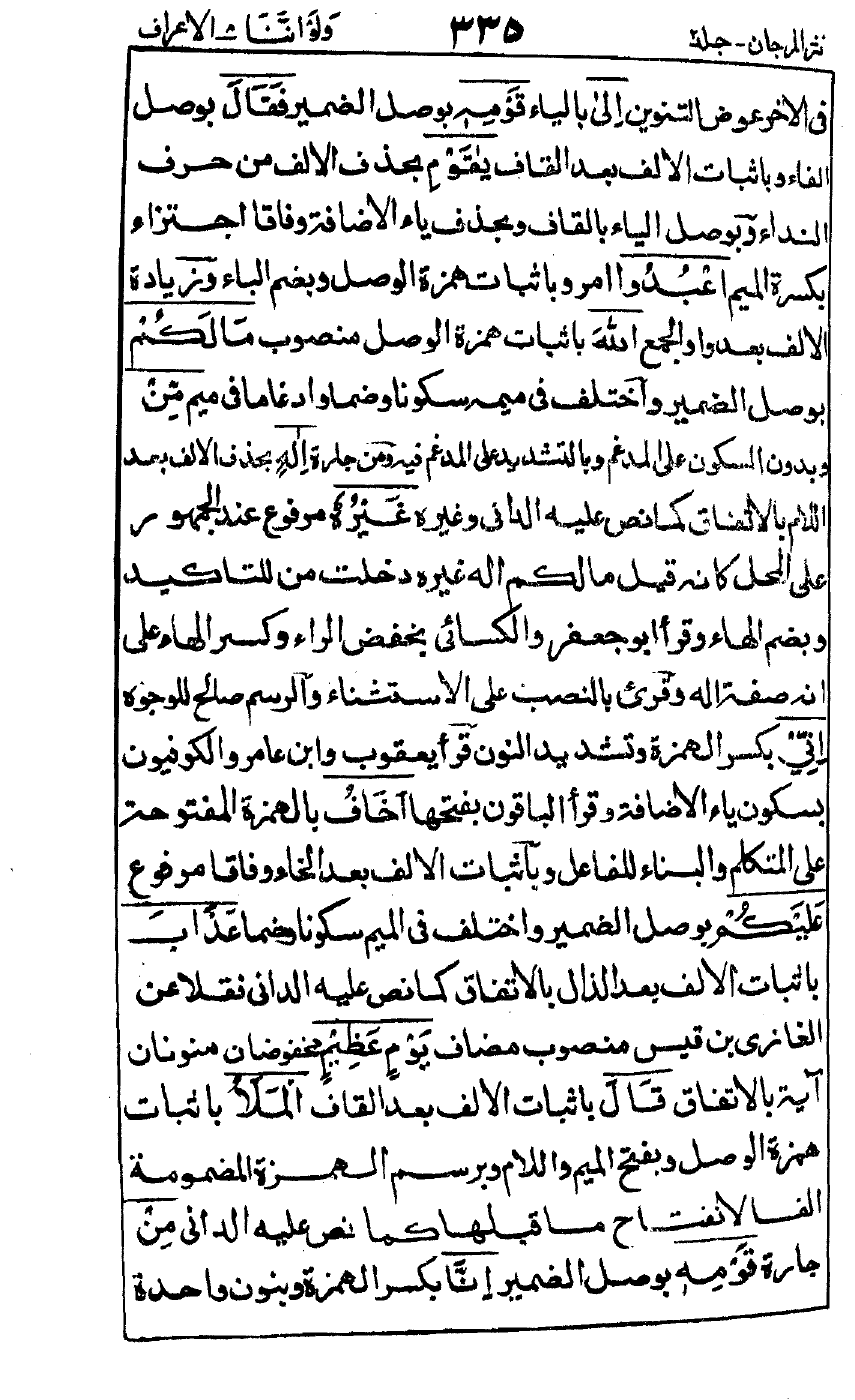 نثر المرجان - جلد ٢ ٣٣٥ ولو اننا ٨ الاعراف
فى الاخر عوض التنوين اِلىٰ بالياء قَوْمِهٖ بوصل الضمير فَقَالَ بوصل
الفاء وباثبات الالف بعد القاف يٰقَوْمِ بحذف الالف من حرف
النداء وبوصل الياء بالقاف وبحذف ياء الاضافة وفاقا اجتزاء
بكسرة الميم اعْبُدُوا امر وباثبات همزة الوصل وبضم الباء وزيادة
الالف بعد واو الجمع اللهَ باثبات همزة الوصل منصوب مَا لَكُمْ
بوصل الضمير واختلف فى ميمه سكونا وضما وادغاما فى ميم مِّنْ
وبدون السكون على المدغم وبالتشديد على المدغم فيه ومن جارة اِلٰهٍ بحذف الالف بعد
اللام بالاتفاق كما نص عليه الدانى وغيره غَيْرُهٗ مرفوع عند الجمهور
على المحل كانه قيل ما لكم اله غيره دخلت من للتاكيد
وبضم الهاء وقرأ ابو جعفر والكسائى بخفض الراء وكسر الهاء على
انه صفة اله وقرئ بالنصب على الاستثناء والرسم صالح للوجوه
اِنِّيْ بكسر الهمزة وتشديد النون قرأ يعقوب وابن عامر والكوفيون
بسكون ياء الاضافة وقرأ الباقون بفتحها اَخَافُ بالهمزة المفتوحة
على المتكلم والبناء للفاعل وباثبات الالف بعد الخاء وفاقا مرفوع
عَلَيْكُمْ بوصل الضمير واختلف فى الميم سكونا وضما عَذَابَ
باثبات الالف بعد الذال بالاتفاق كما نص عليه الدانى نقلا عن
الغازى بن قيس منصوب مضاف يَوْمٍ عَظِيْمٍ مخفوضان منونان
آية بالاتفاق قَالَ باثبات الالف بعد القاف الْمَلَأُ باثبات
همزة الوصل وبفتح الميم واللام وبرسم الهمزة المضمومة
الفا لانفتاح ما قبلها كما نص عليه الدانى مِنْ
جارة قَوْمِهٖ بوصل الضمير اِنَّا بكسر الهمزة وبنون واحدة